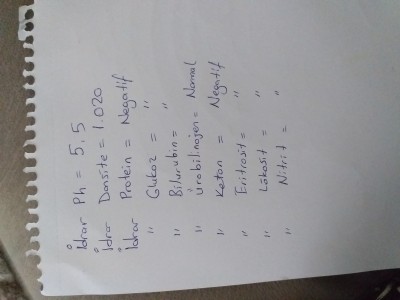 İdrar Ph = 5,5
İdrar Dansite = 1.020
İdrar Protein = Negatif
" Glukoz = "
" Bilurubin = "
" Ürobilinojen = Normal
" Keton = Negatif
" Eritrosit = "
" Lökosit = "
" Nitrit = "